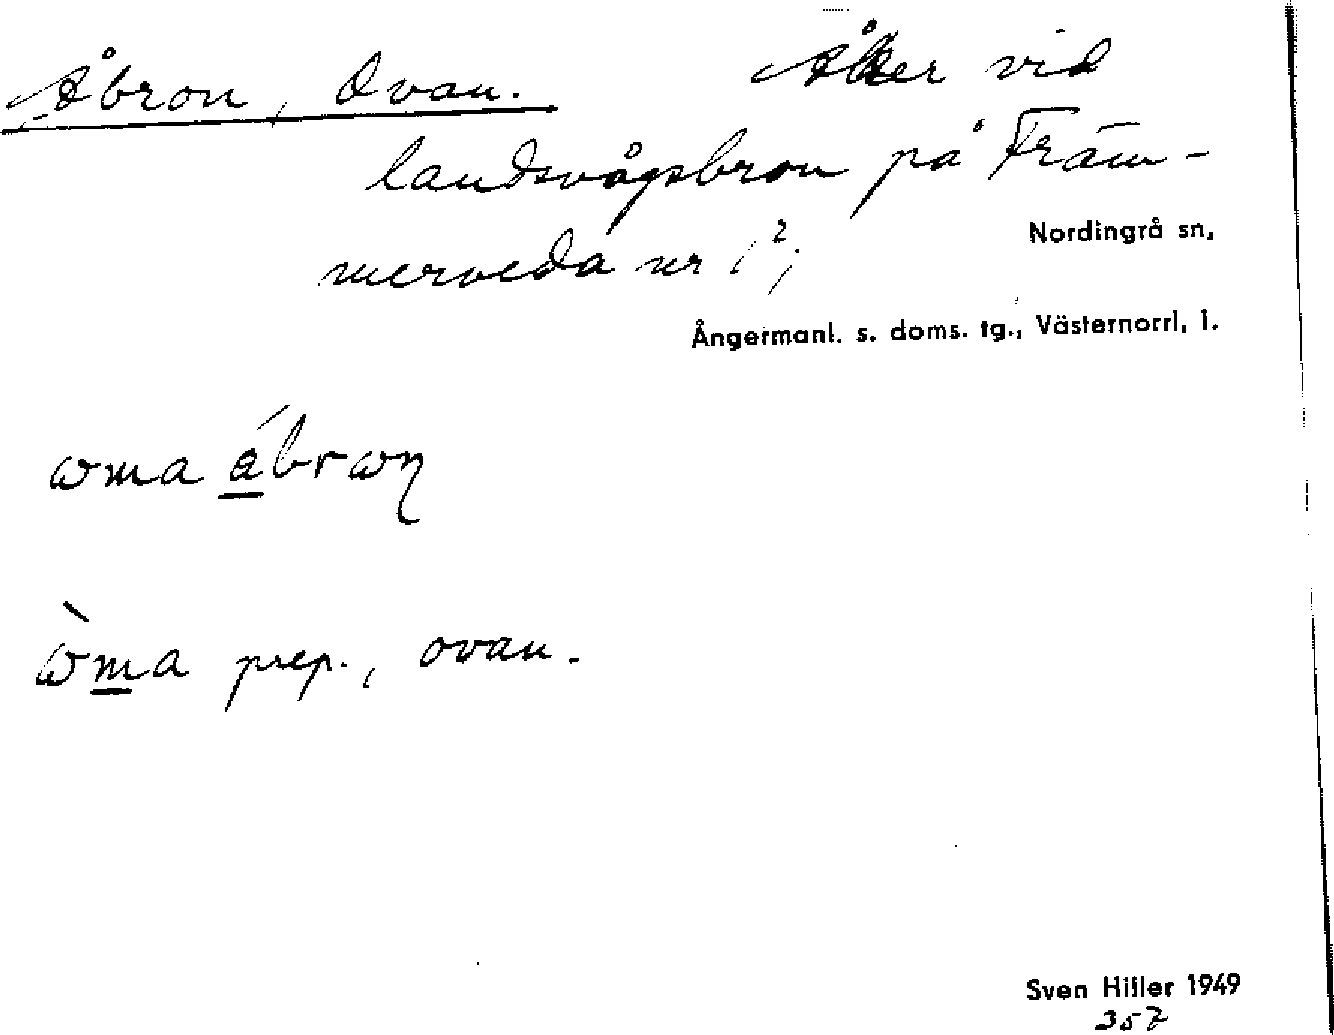 Åbron, Ovan. Åker vid
landsvägsbron på Främ-
merveda nr 1²;
Nordingrå sn,
Ångermanl. s. doms. tg., Västernorrl. l.
ωma ábrωn
ὼma prep., ovan.
Sven Hiller 1949
357